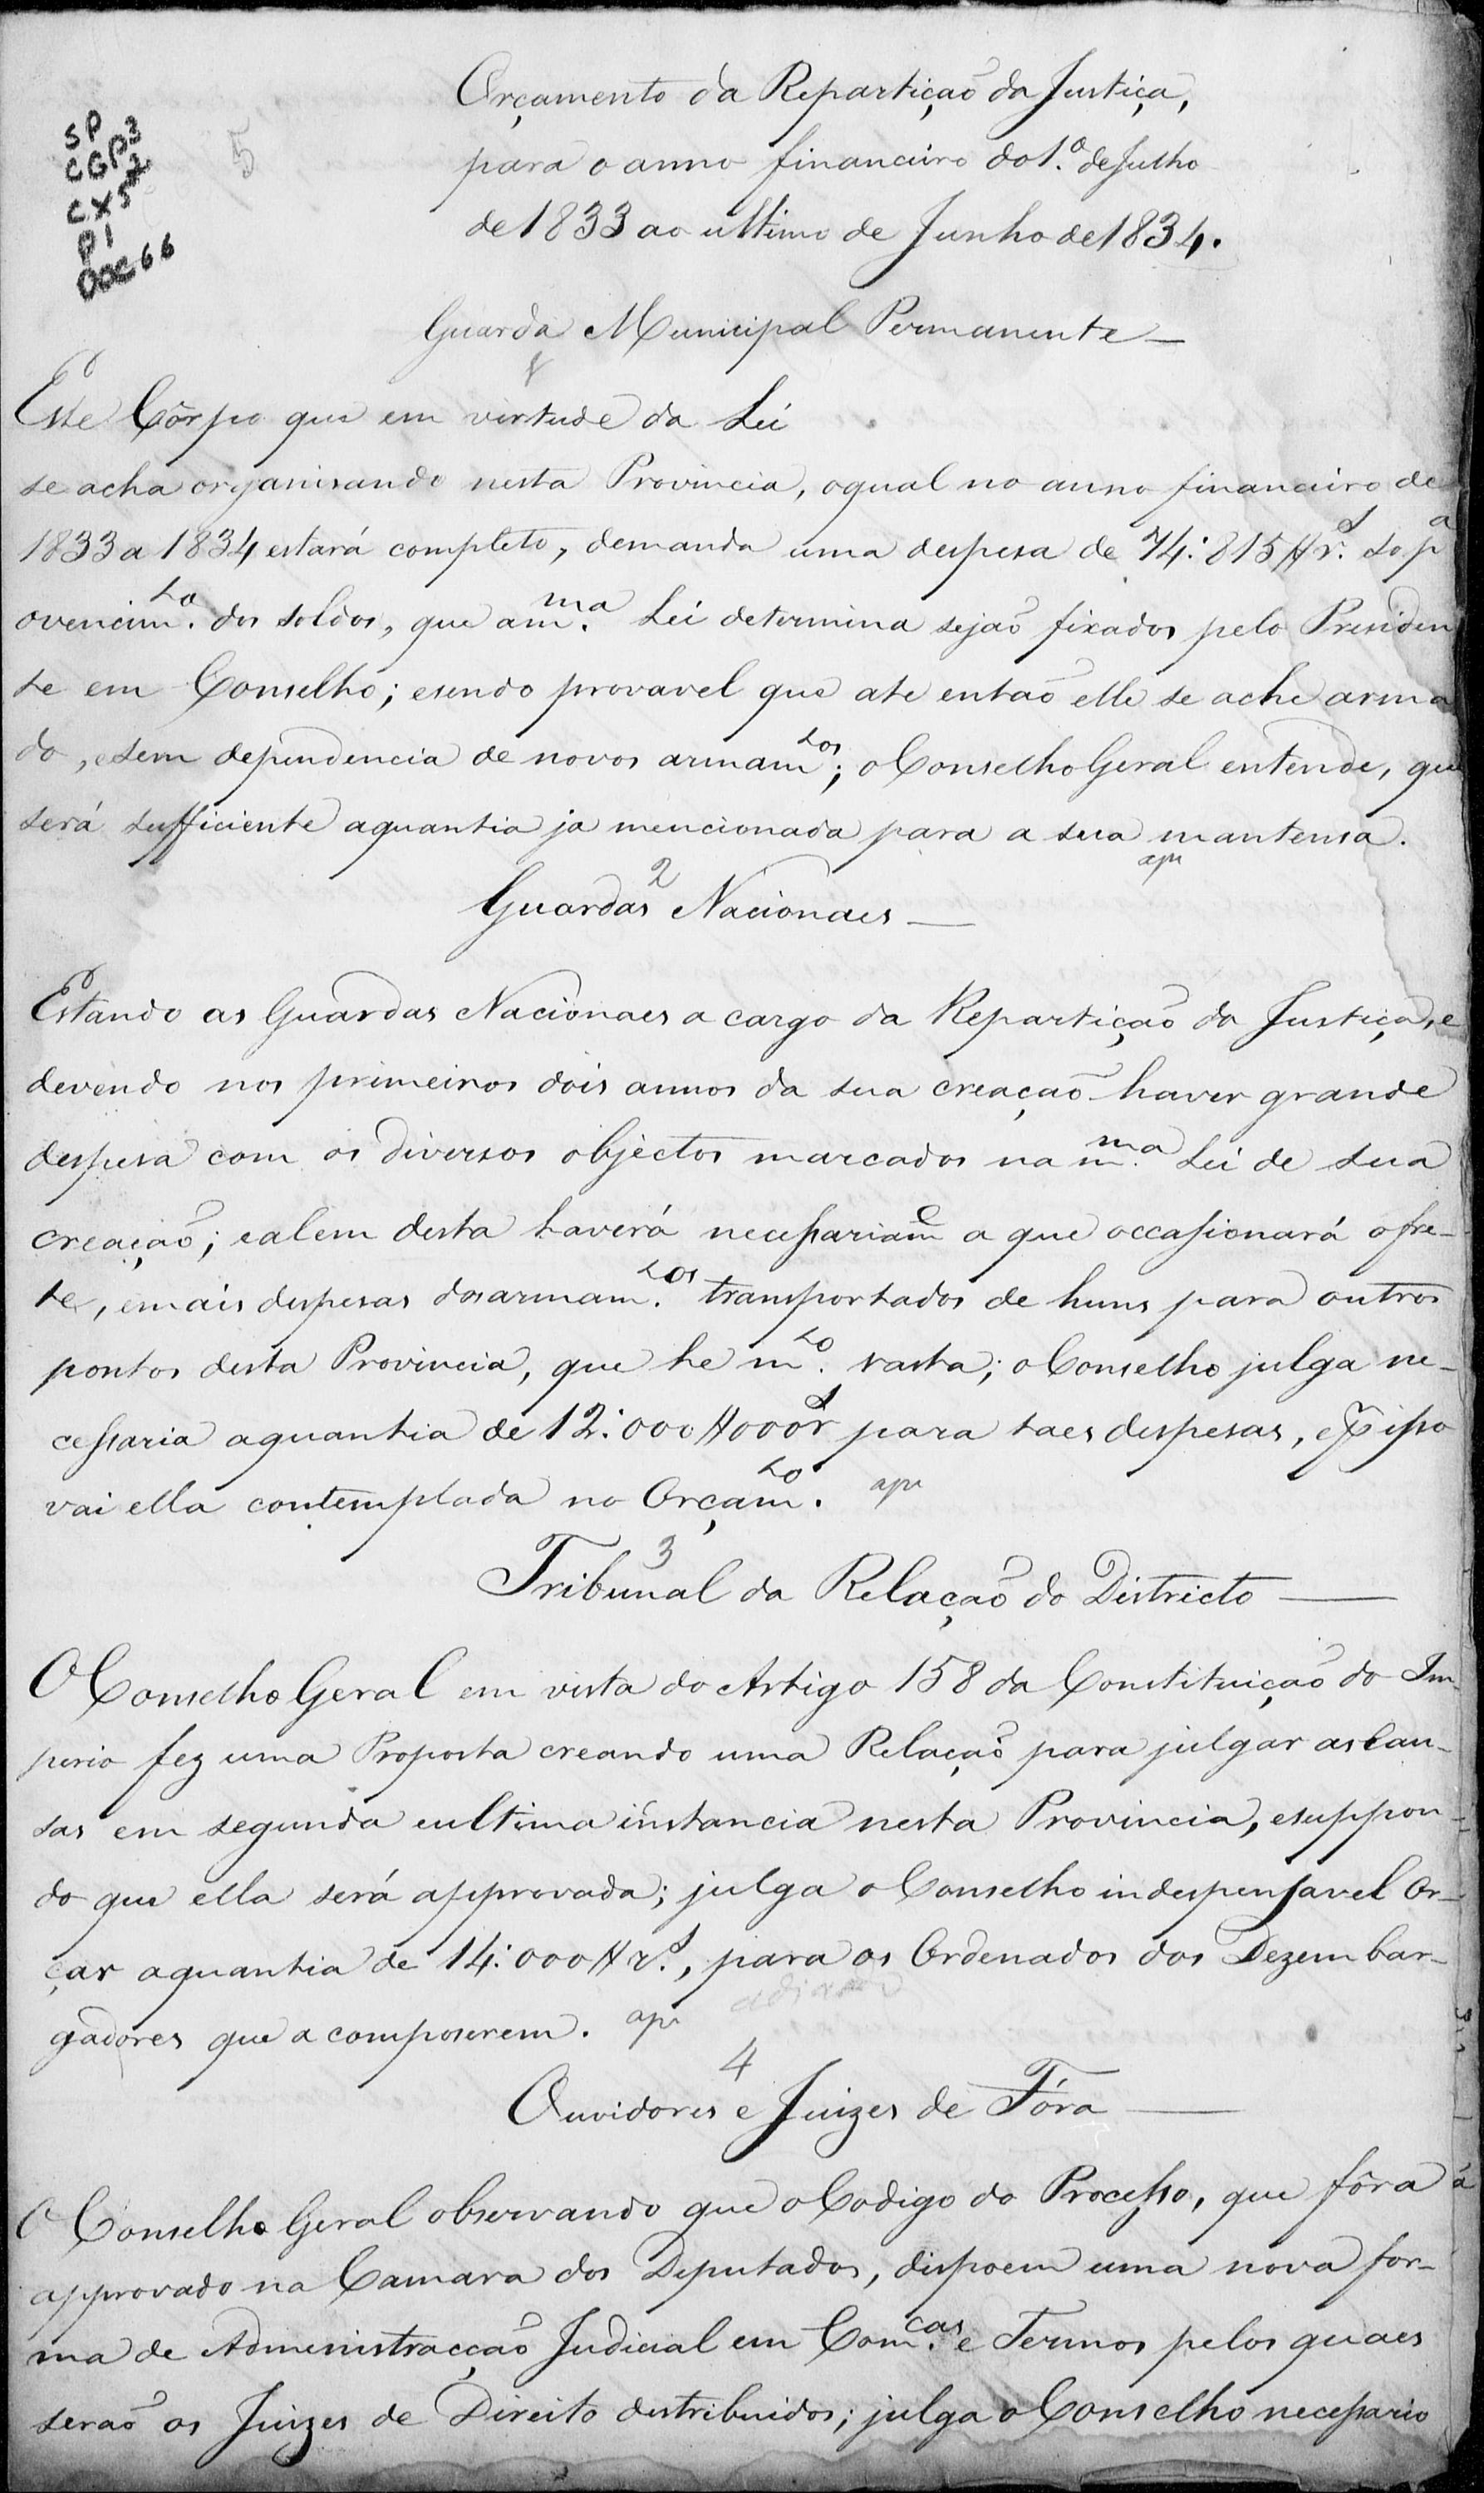 SP
CGP3
CX572
P1
DOC66
5
Orçamento da Repartição da Justiça,
para o anno financeiro do 1.º de Julho
de 1833 ao ultimo de Junho de 1834.
Guarda Municipal Permanente —
Este Côrpo que em virtude da Lei
se acha organisando nesta Provincia, oqual no anno financeiro de
1833 a 1834 estará completo, demanda uma despesa de 74:815$r.s so p.a
ovencim.to dos soldos, que am.ma Lei determina sejaõ fixados pelo Presiden
te em Conselho; esendo provavel que ate entaõ elle se ache arma
do, esem dependencia de novos armam.tos; oConselho Geral entende, que
será sufficiente aquantia ja mencionada para a sua mantensa.
apr
2
Guardas Nacionaes —
Estando as Guardas Nacionaes a cargo da Repartiçaõ da Justiça, e
devendo nos primeiros dois annos da sua creaçaõ haver grande
despesa com os diversos objectos marcados na m.ma Lei de sua
creaçaõ; ealem desta haverá necessariam.e a que occasionará ofre-
te, emais despesas dosarmam.tos transportados de huns para outros
pontos desta Provincia, que he m.to vasta; oConselho julga ne-
cessaria aquantia de 12:000$000r.s para taes despesas, e p isso
vai ella contemplada no Orçam.to. apr
3
Tribunal da Relaçaõ do Districto —
OConselho Geral em vista do Artigo 158 da Constituiçaõ do Im-
perio fez uma Proposta creando uma Relaçaõ para julgar as Cau-
sas em segunda eultima instancia nesta Provincia, esuppon-
do que ella será approvada; julga oConselho indespensavel Or-
çar aquantia de 14:000$r.s, para os Ordenados dos Dezembar-
gadores que a composerem. apr
4
Ouvidores e Juizes de Fóra —
O Conselho Geral observando que oCodigo do Processo, que fôra já
approvado na Camara dos Deputados, dispoem uma nova for-
ma de Admenistracçaõ Judicial em Com.cas e Termos pelos quaes
seraõ os Juizes de Direito destribuidos; julga oConselho necessario